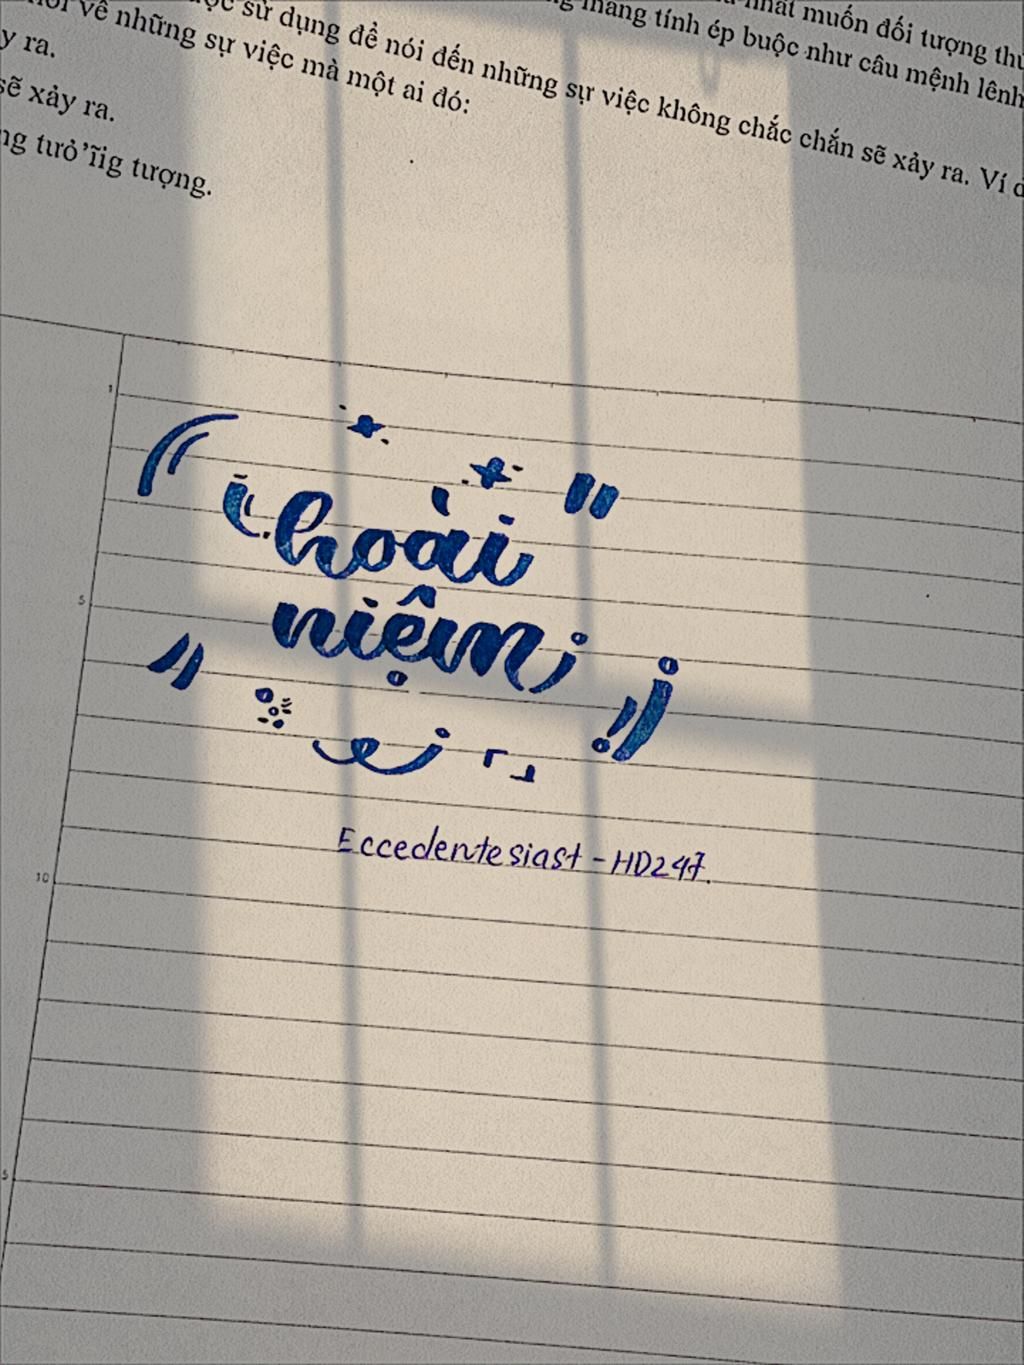 nhất muốn đối tượng
mang tính ép buộc như câu mệnh lệnh
sử dụng để nói đến những sự việc không chắc chắn sẽ xảy ra. Ví
về những sự việc mà một ai đó:
y ra.
sẽ xảy ra.
ng tưở’ĩig tượng.
1
hoài
niệm
5
Eccedentesiast - HD247.
10
5